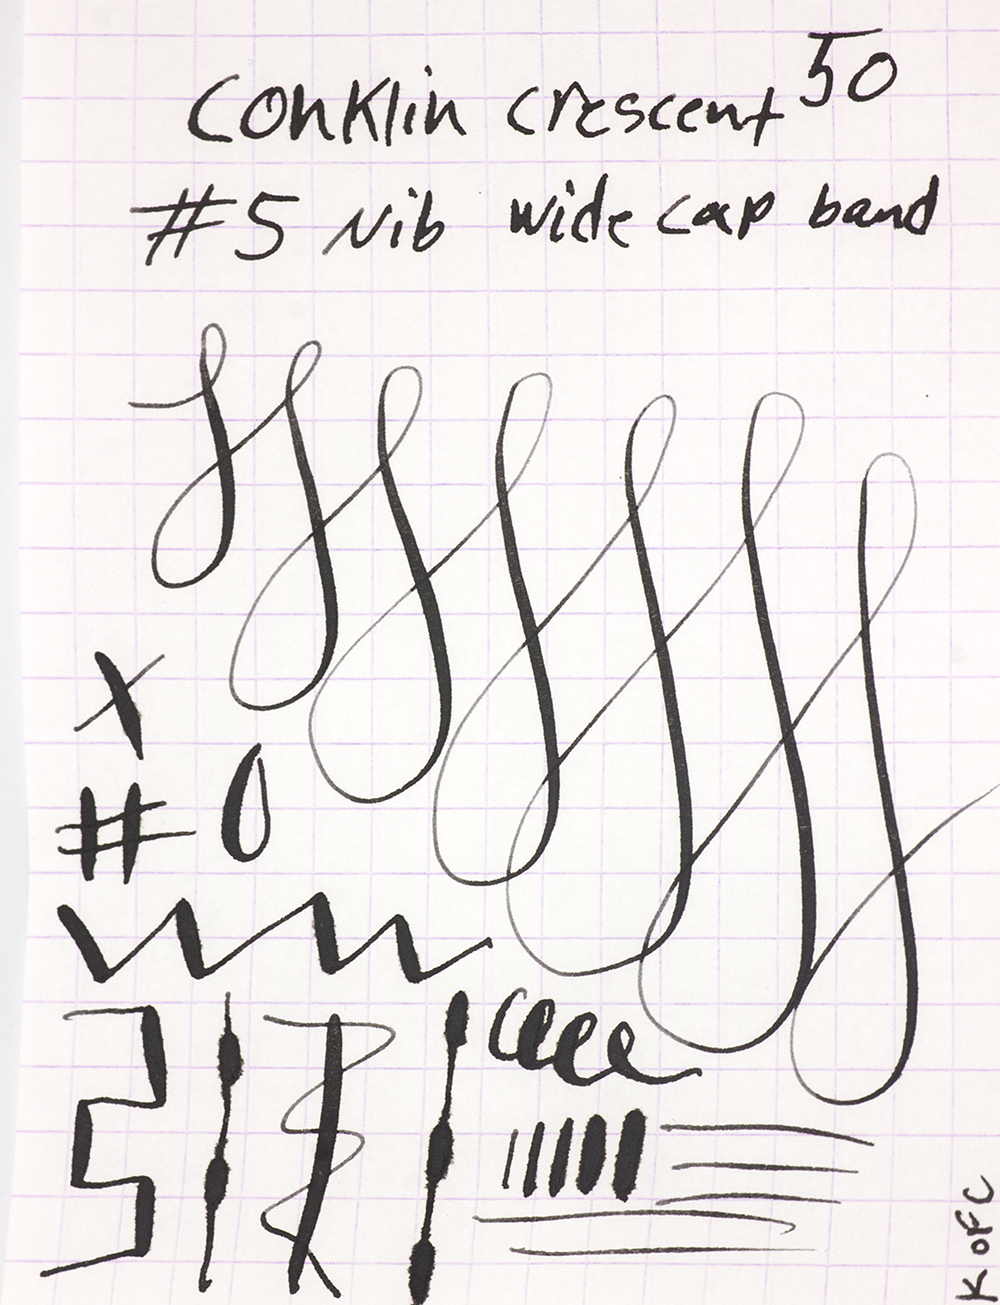 Conklin crescent 50
#5 Nib wide cap band
x
# 0
K of C